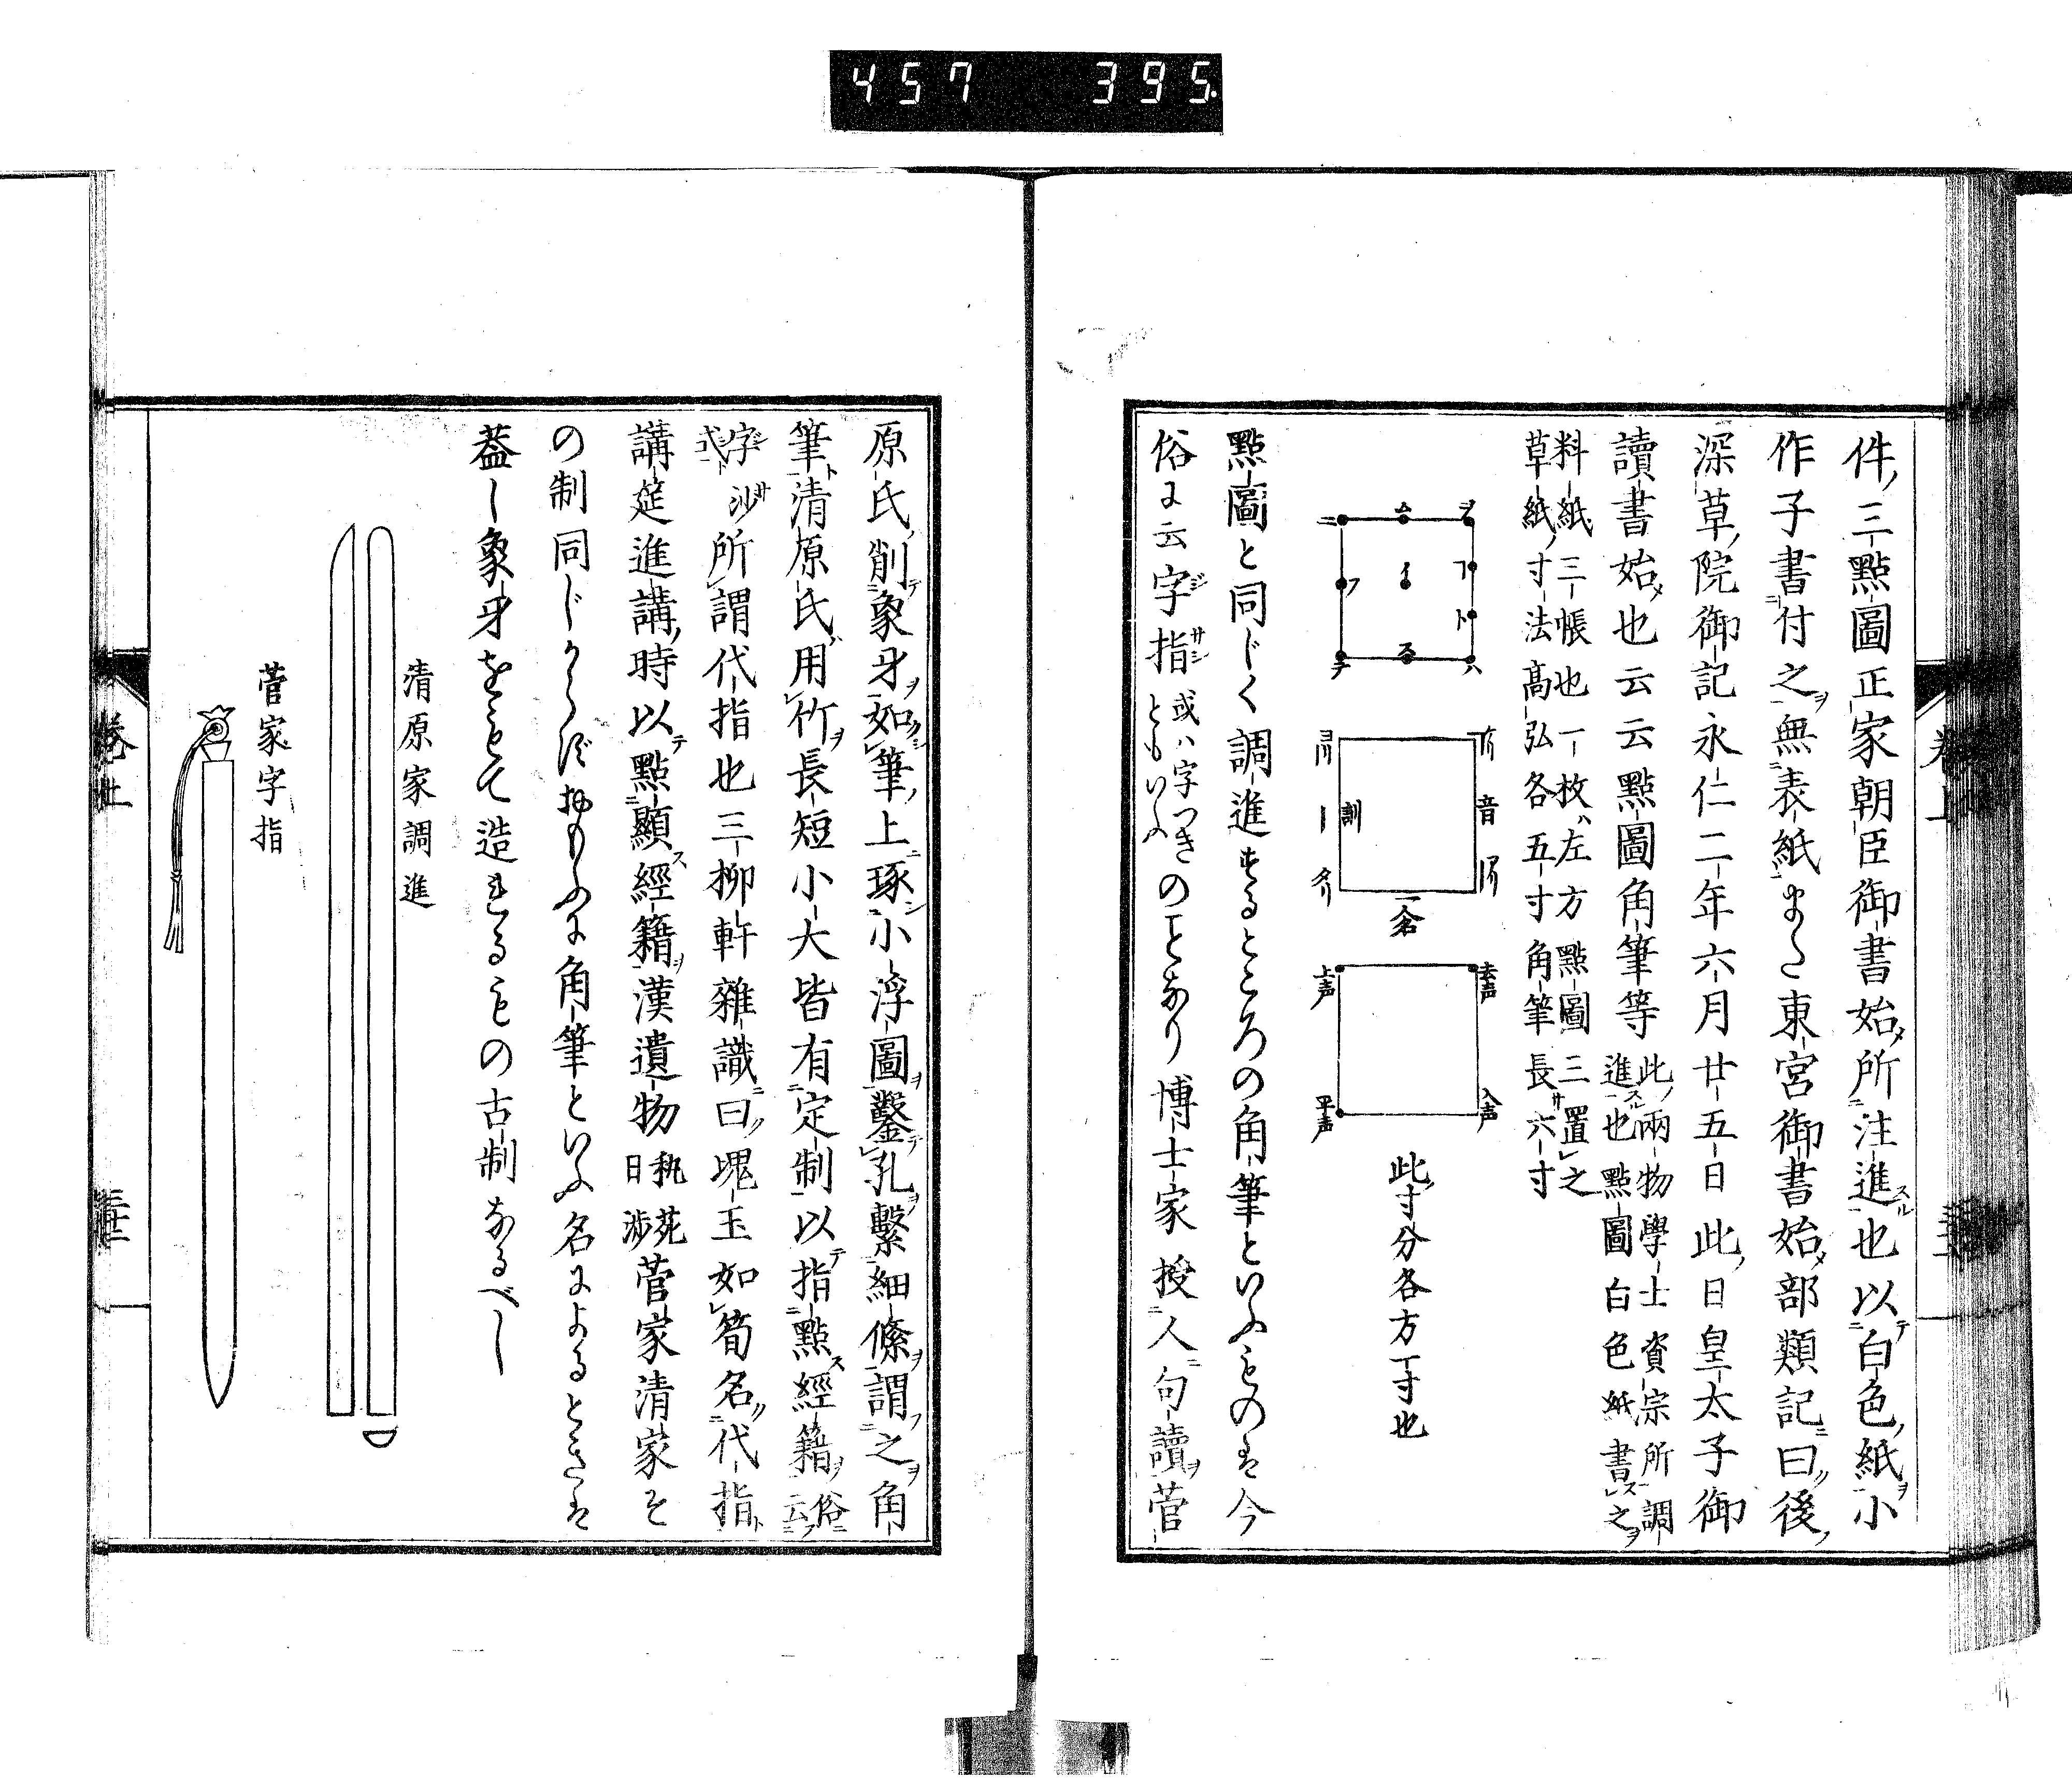 457 395
件三點圖正家朝臣御書始所注進也以白色紙小
作子書付之無表紙また東宮御書始部類記曰後
深草院御記永仁二年六月廿五日此日皇太子御
讀書始也云云點圖角筆等此兩物學士資宗所調
進也點圖白色紙書之
料紙三帳也一枚ハ左方點圖三置之
草紙寸法高弘各五寸角筆長六寸
此寸分各方一寸也
點圖と同じく調進するところの角筆といふものは今
俗に云字指或ハ字つき
ともいふのことなり博士家授人句讀菅
原氏削象牙如筆上琢小浮圖鑿孔繫細絛謂之角
筆清原氏用竹長短小大皆有定制以指點經籍俗云
字沙
式所謂代指也三柳軒雜識曰塊玉如筍名代指
講筵進講時以點顯經籍漢遺物執苑
日渉菅家清家そ
の制同じからずおもふに角筆といふ名によるときは
蓋し象牙をもて造れるもの古制なるべし
清原家調進
菅家字指